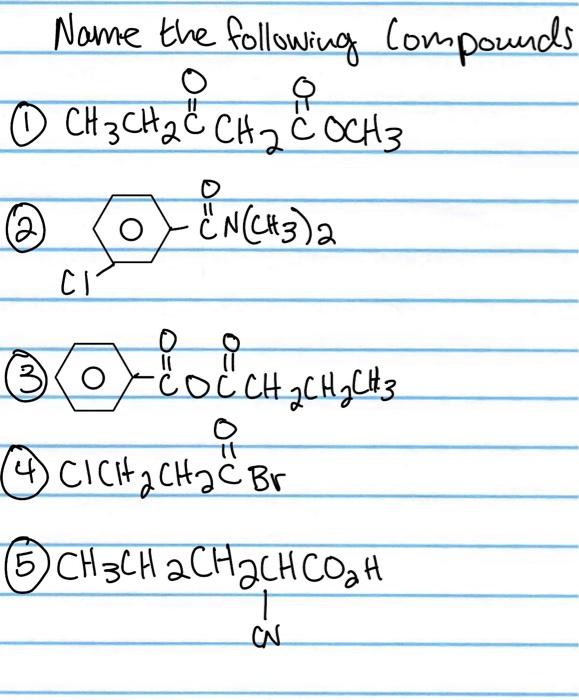 Name the following Compounds
① CH3CH2C̈CH2C̈OCH3
O O
② O
C N(CH3)2
Cl
③ O O
C O C CH2CH2CH3
O
④ ClCH2CH2C Br
⑤ CH3CH2CH2CHCO2H
CN